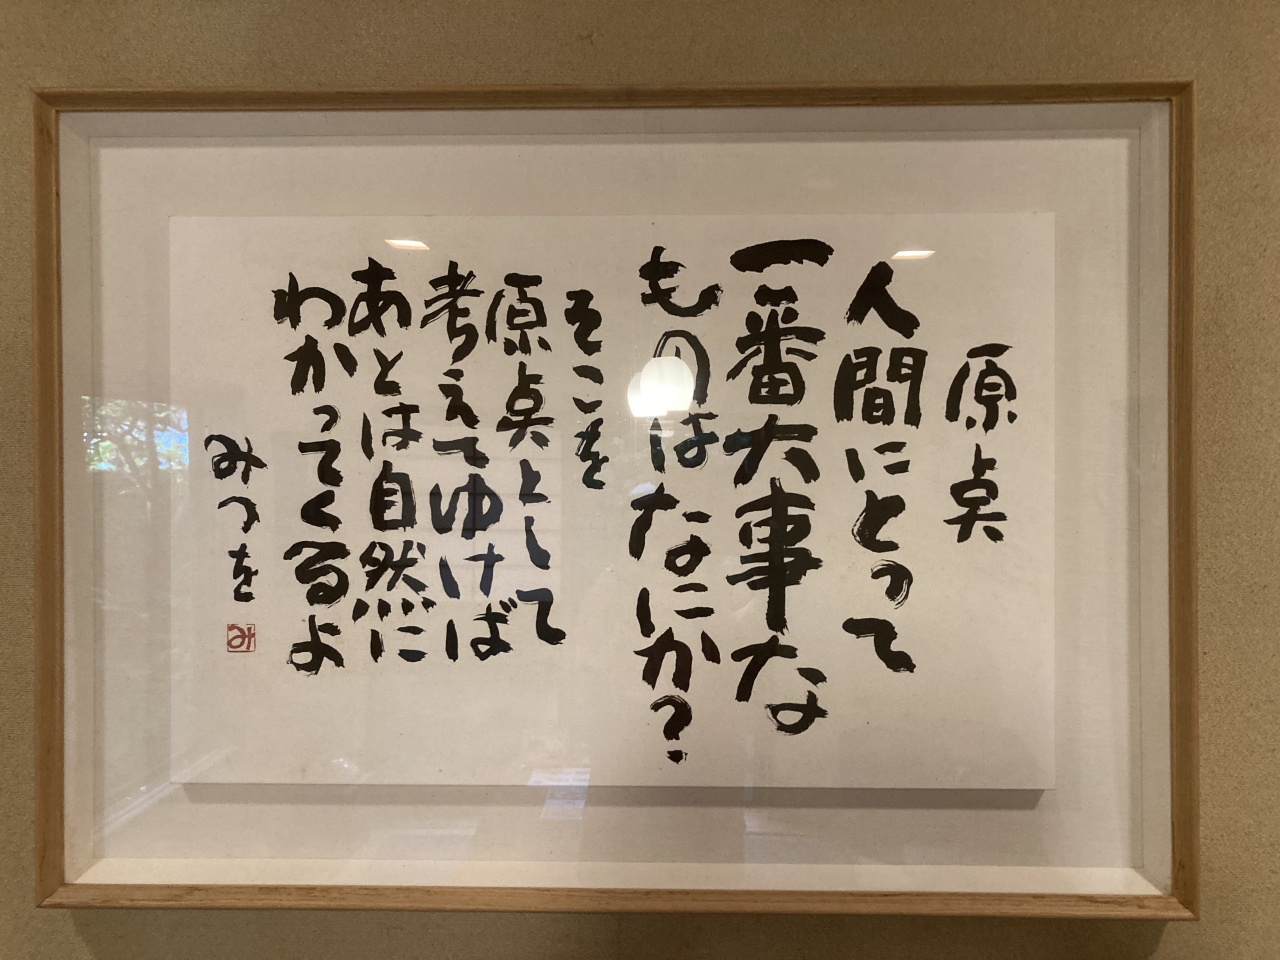 原点
人間にとって
一番大事な
ものはなにか?
そこを
原点として
考えてゆけば
あとは自然に
わかってくるよ
みつを
み